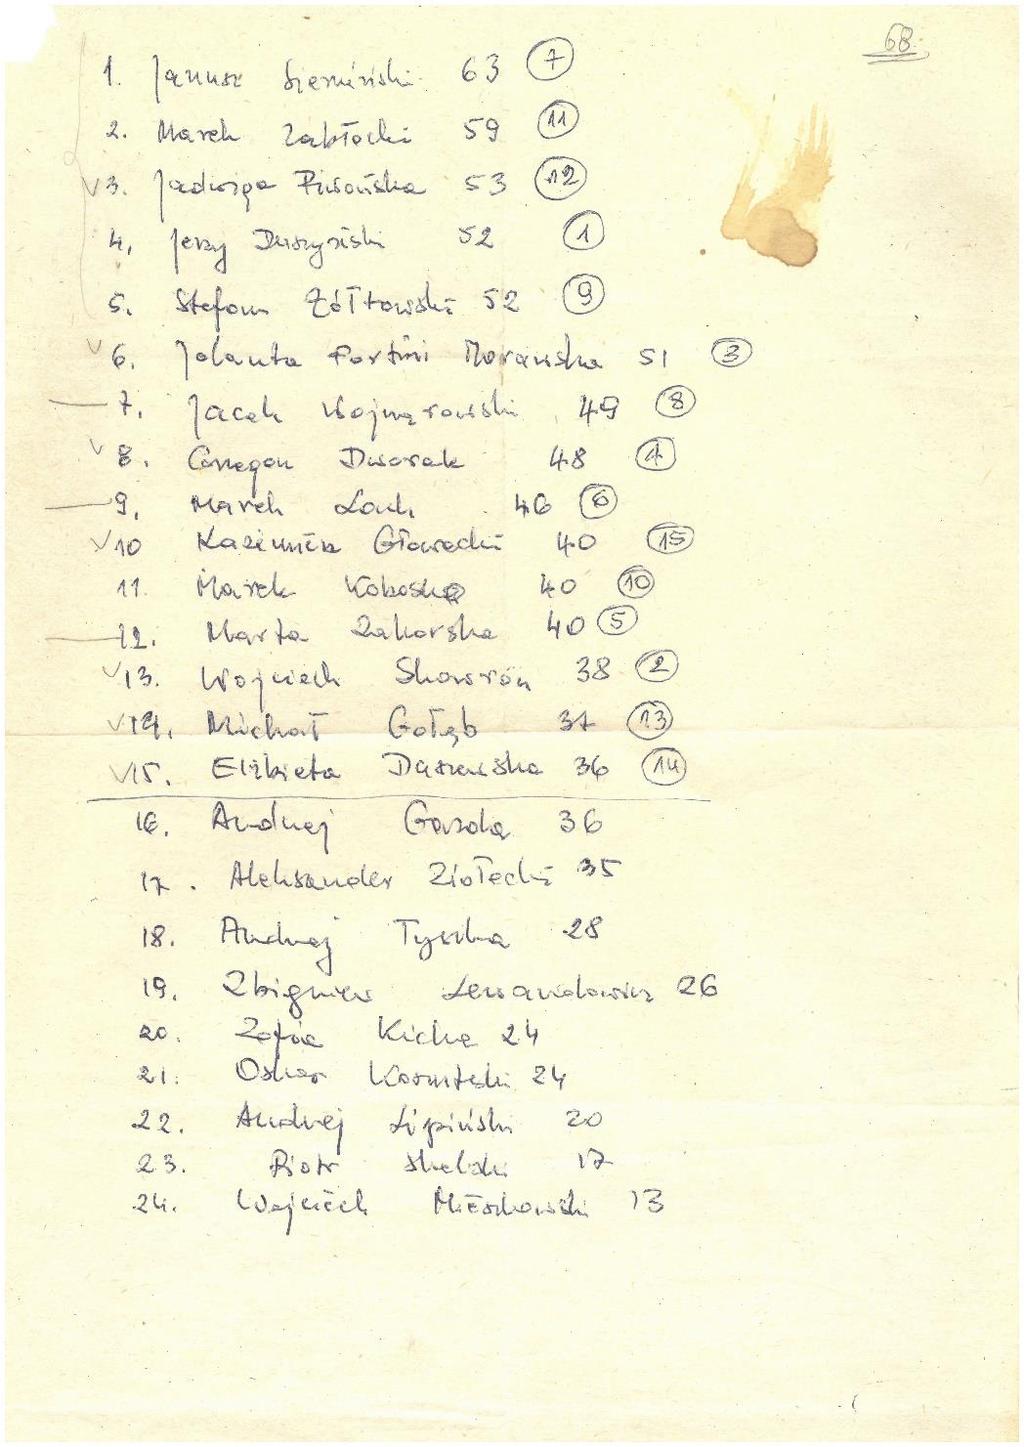 68.
1. Janusz Siemiński 63 7
2. Marek Zabłocki 59 11
V 3. Jadwiga Piwońska 53 12
4. Jerzy Duszyński 52 1
5. Stefan Żółtowski 52 9
V 6. Jolanta Fortini Morawska 51 3
7. Jacek Wojnarowski 49 8
V 8. Grzegorz Dworak 48 4
9. Marek 46 6
V 10 Kazimierz Głowacki 40 15
11. Marek 40 10
12. Marta Zakorska 40 5
V 13. Wojciech Skowron 38 2
V 14. Michał Gołąb 37 13
V 15. Elżbieta Daszewska 36 14
16. Andrzej Gazda 36
17. Aleksander Ziołecki 35
18. Andrzej Tyszka 28
19. Zbigniew Lewandowicz 26
20. Zofia 24
21. Oskar 24
22. Andrzej Lipiński 20
23. Piotr 17
24. Wojciech Mieszkowski 13